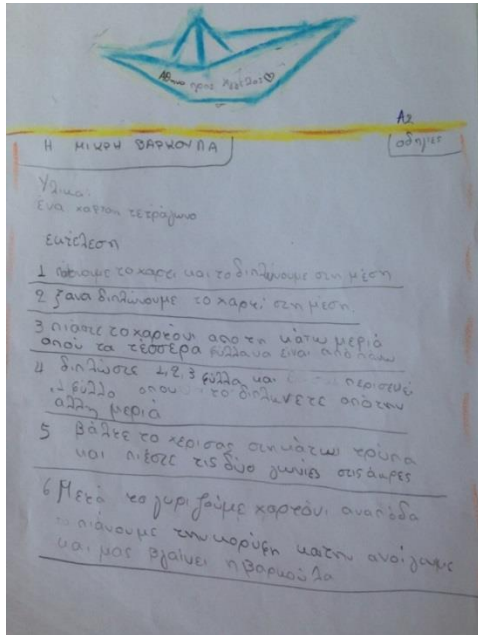 Αθηνα προς
Α2
Η ΜΙΚΡΗ ΒΑΡΚΟΥΛΑ
οδηγιες
Υλικα:
ενα χαρτονι τετράγωνο
εκτέλεση
1 το χαρτι και το διπλώνουμε στη μέση
2 ξανα διπλώνουμε το χαρτί στη μέση
3 πιάστε το χαρτόνι απο τη κάτω μεριά
οπού τα τέσσερα φύλλα να είναι από πάνω
4 διπλώστε 1, 2, 3 φύλλα και περισσεύει
1 φύλλο οπου το διπλώνετε από την
άλλη μεριά
5 βάλτε το χέρι σας στη κάτω τρύπα
και πιέστε τις δύο γωνίες στις άκρες
6 Μετά το γυρίζουμε χαρτόνι αναποδα
το πιάνουμε την κορυφη και την ανοίγουμε
και μας βγαίνει η βαρκούλα